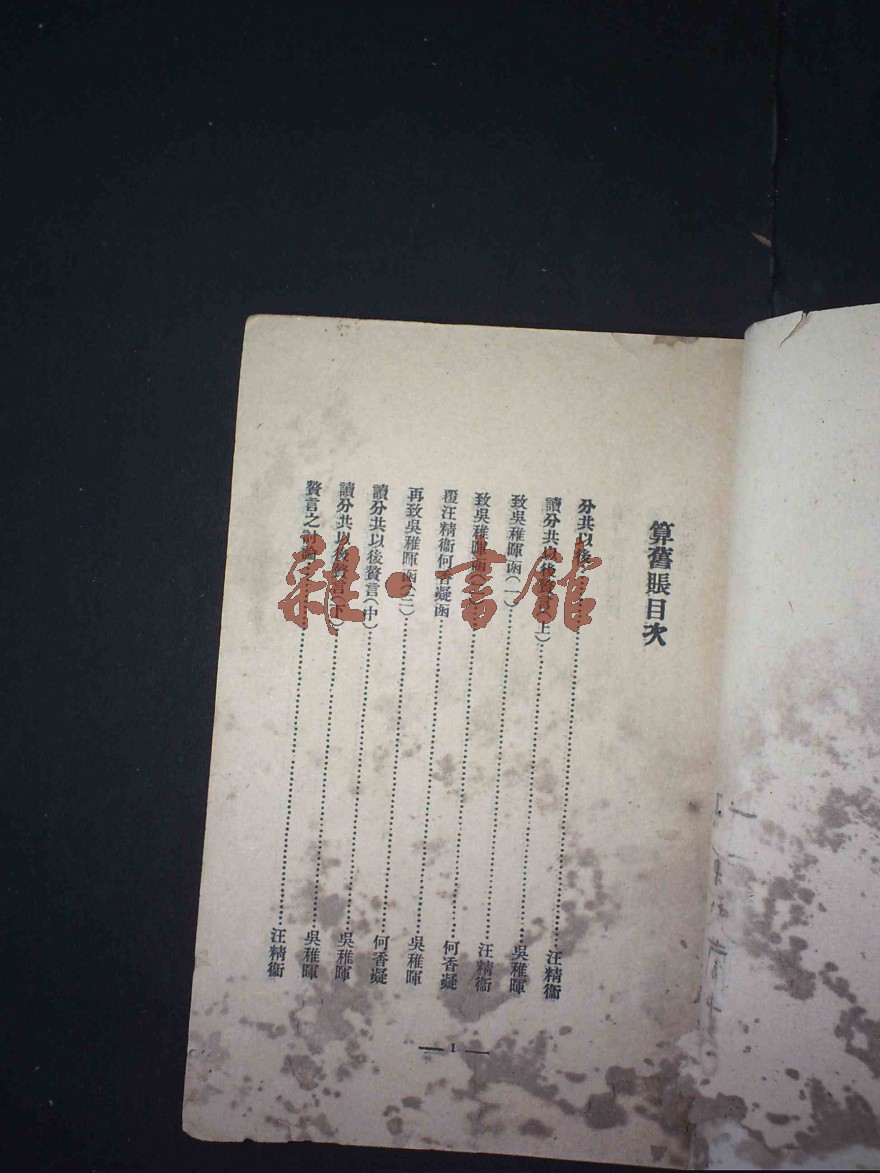 算舊賬目次
分共以後……汪精衞
讀分共以後贅言(上)……吳稚暉
致吳稚暉函(一)……汪精衞
致吳稚暉函(二)……何香凝
覆汪精衞何香凝函……吳稚暉
再致吳稚暉函(二)……何香凝
讀分共以後贅言(中)……吳稚暉
讀分共以後贅言(下)……吳稚暉
贅言之討論……汪精衞
— 1 —
雜·書館